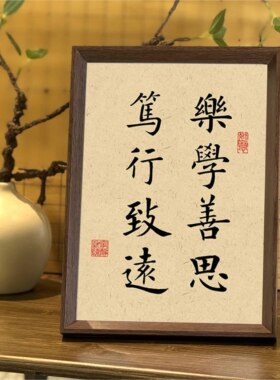 樂學善思
篤行致遠